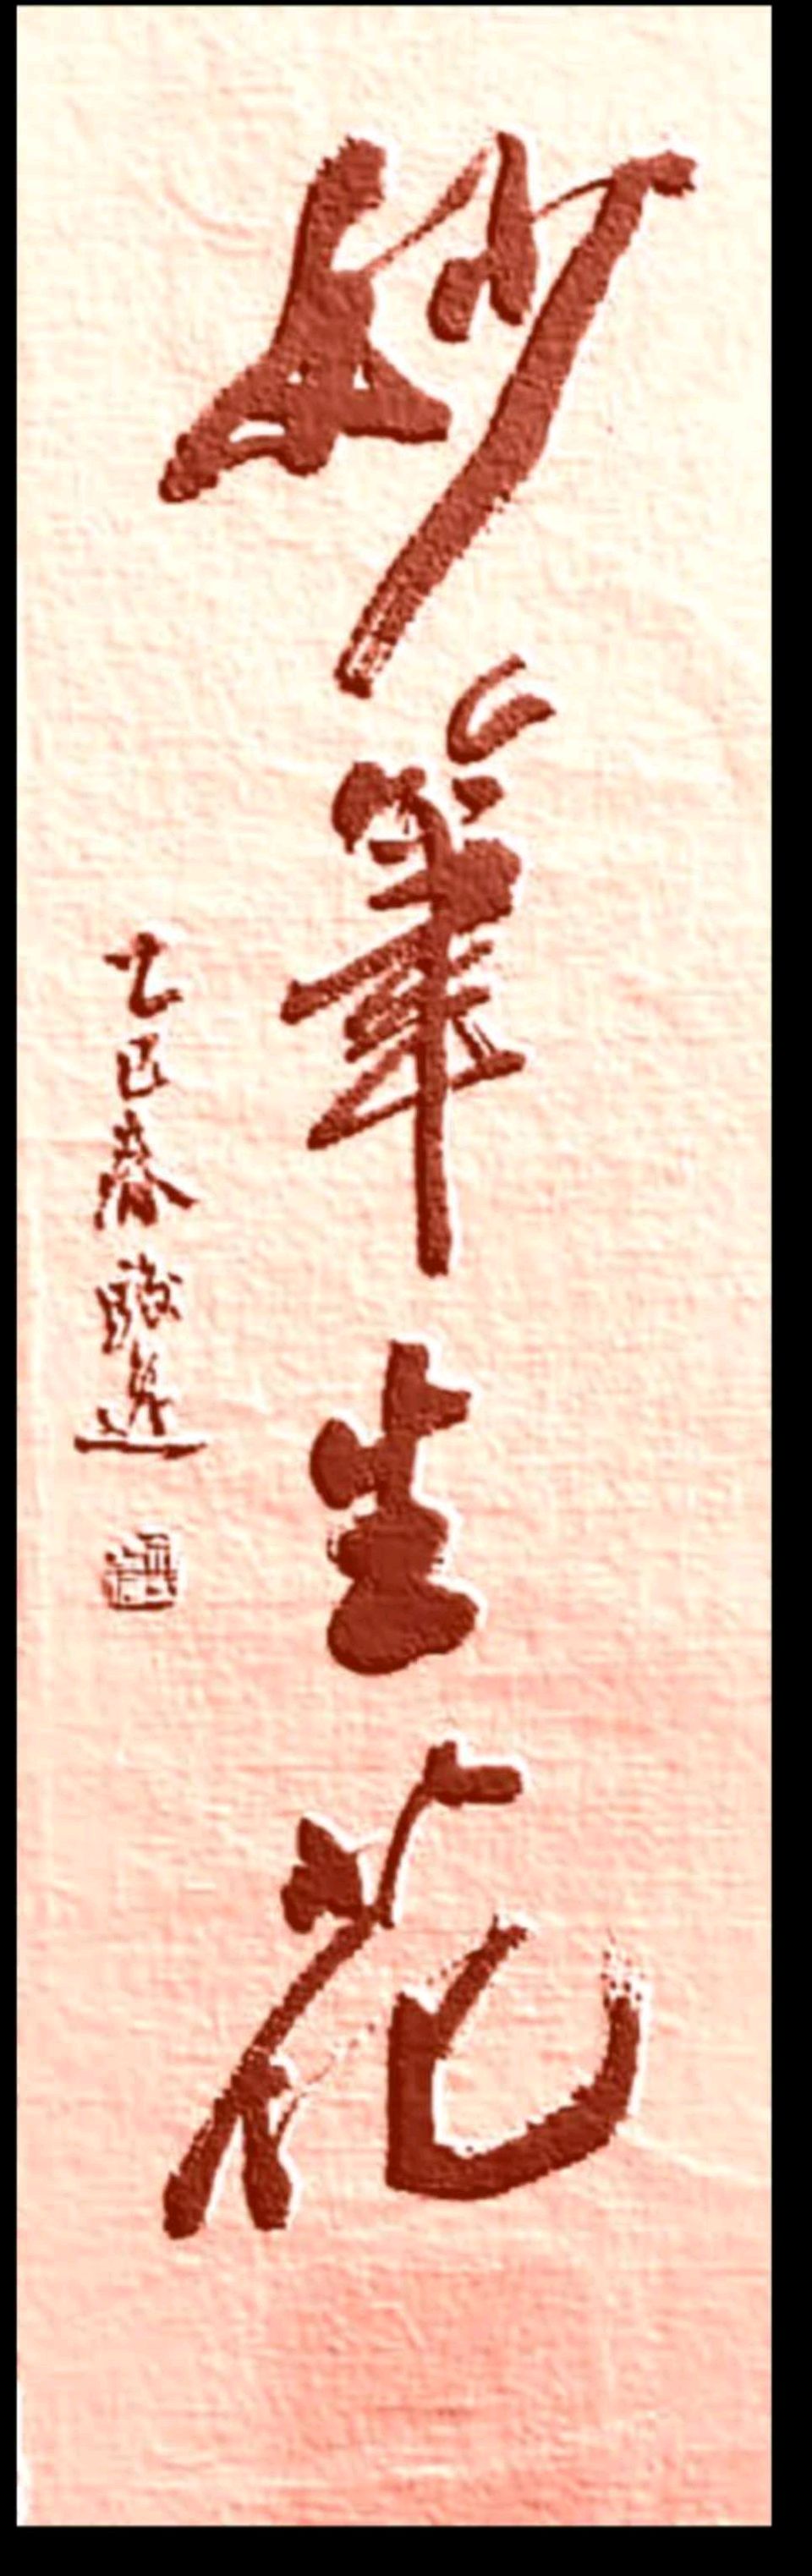 妙筆生花
乙巳春